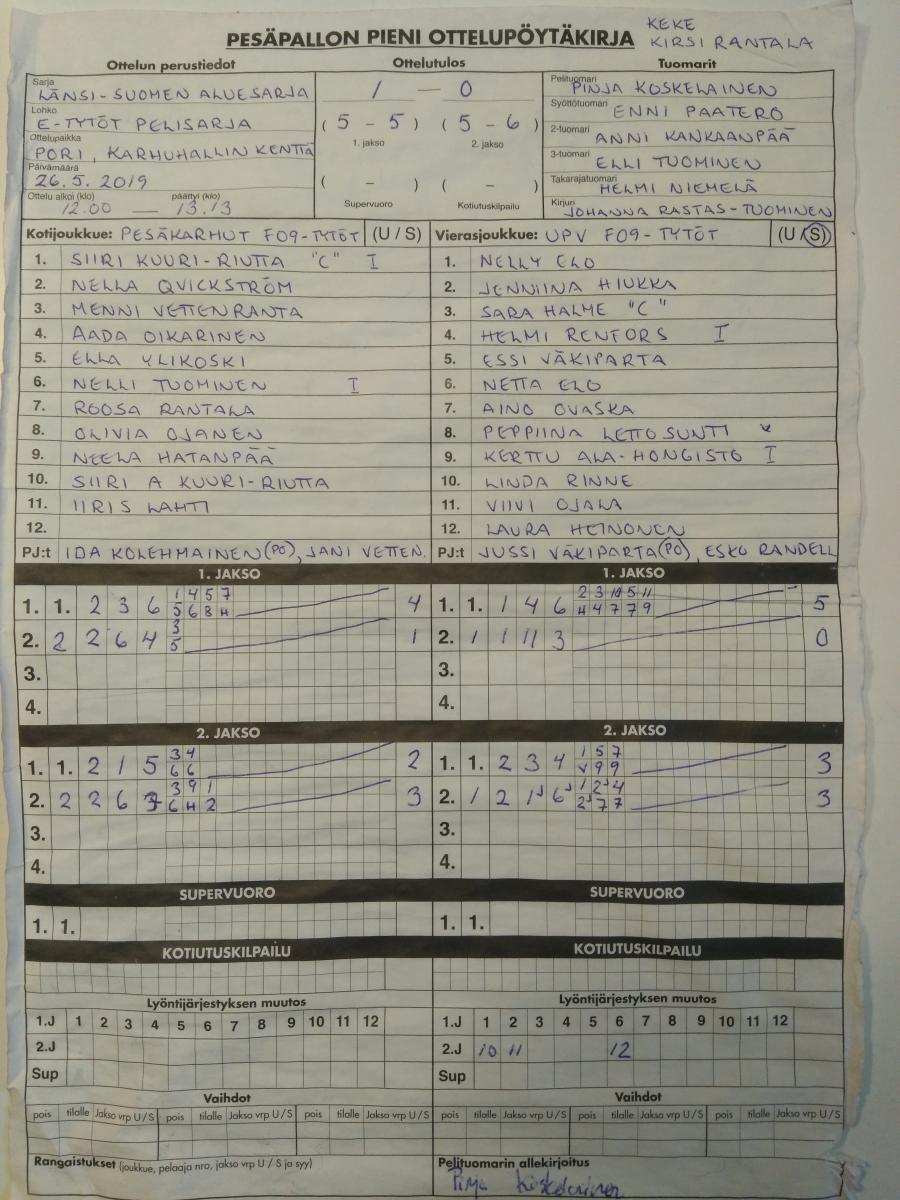 KEKE
PESÄPALLON PIENI OTTELUPÖYTÄKIRJA KIRSI RANTALA
Ottelun perustiedot Ottelutulos Tuomarit
Sarja LÄNSI-SUOMEN ALUESARJA
Lohko E-TYTÖT PELISARJA
Ottelupaikka PORI, KARHUHALLIN KENTTÄ
Päivämäärä 26.5.2019
Ottelu alkoi (klo) 12.00 — päättyi (klo) 13.13
1 — 0
(5 - 5) (5 - 6)
1. jakso 2. jakso
( - ) ( - )
Supervuoro Kotiutuskilpailu
Pelituomari PINJA KOSKELAINEN
Syöttötuomari ENNI PAATERO
2-tuomari ANNI KANKAANPÄÄ
3-tuomari ELLI TUOMINEN
Takarajatuomari HELMI NIEMELÄ
Kirjuri JOHANNA RASTAS-TUOMINEN
Kotijoukkue: PESÄKARHUT F09-TYTÖT (U / S)
1. SIIRI KUURI-RIUTTA "C" I
2. NELLA QVICKSTRÖM
3. MENNI VETTENRANTA
4. AADA OIKARINEN
5. ELLA YLIKOSKI
6. NELLI TUOMINEN I
7. ROOSA RANTALA
8. OLIVIA OJANEN
9. NEELA HATANPÄÄ
10. SIIRI A KUURI-RIUTTA
11. IIRIS LAHTI
12.
PJ:t IDA KOLEHMAINEN (PO), JANI VETTEN.
Vierasjoukkue: UPV F09-TYTÖT (U / S)
1. NELLY ELO
2. JENNIINA HIUKKA
3. SARA HALME "C"
4. HELMI RENFORS I
5. ESSI VÄKIPARTA
6. NETTA ELO
7. AINO OVASKA
8. PEPPIINA LETTOSUNTI
9. KERTTU ALA-HONGISTO I
10. LINDA RINNE
11. VIIVI OJALA
12. LAURA HEINONEN
PJ:t JUSSI VÄKIPARTA (PO), ESKO RANDELL
1. JAKSO
1. 1. 2 3 6 1 4 5 7 4
5 6 8 H
2. 2 2 6 4 3 1
5
3.
4.
1. JAKSO
1. 1. 1 4 6 2 3 10 5 11 5
H 4 7 7 9
2. 1 1 11 3 0
3.
4.
2. JAKSO
1. 1. 2 1 5 3 4 2
6 6
2. 2 2 6 3 3 9 1 3
6 H 2
3.
4.
2. JAKSO
1. 1. 2 3 4 1 5 7 3
V 9 9
2. 1 2 1 6 1 2 4 3
2 7 7
3.
4.
SUPERVUORO SUPERVUORO
1. 1. 1. 1.
KOTIUTUSKILPAILU KOTIUTUSKILPAILU
Lyöntijärjestyksen muutos Lyöntijärjestyksen muutos
1.J 1 2 3 4 5 6 7 8 9 10 11 12 1.J 1 2 3 4 5 6 7 8 9 10 11 12
2.J 2.J 10 11 12
Sup Sup
Vaihdot Vaihdot
pois tilalle Jakso vrp U / S pois tilalle Jakso vrp U / S pois tilalle Jakso vrp U / S pois tilalle Jakso vrp U / S pois tilalle Jakso vrp U / S pois tilalle Jakso vrp U / S
Rangaistukset (joukkue, pelaaja nro, jakso vrp U / S ja syy) Pelituomarin allekirjoitus
Pinja Koskelainen